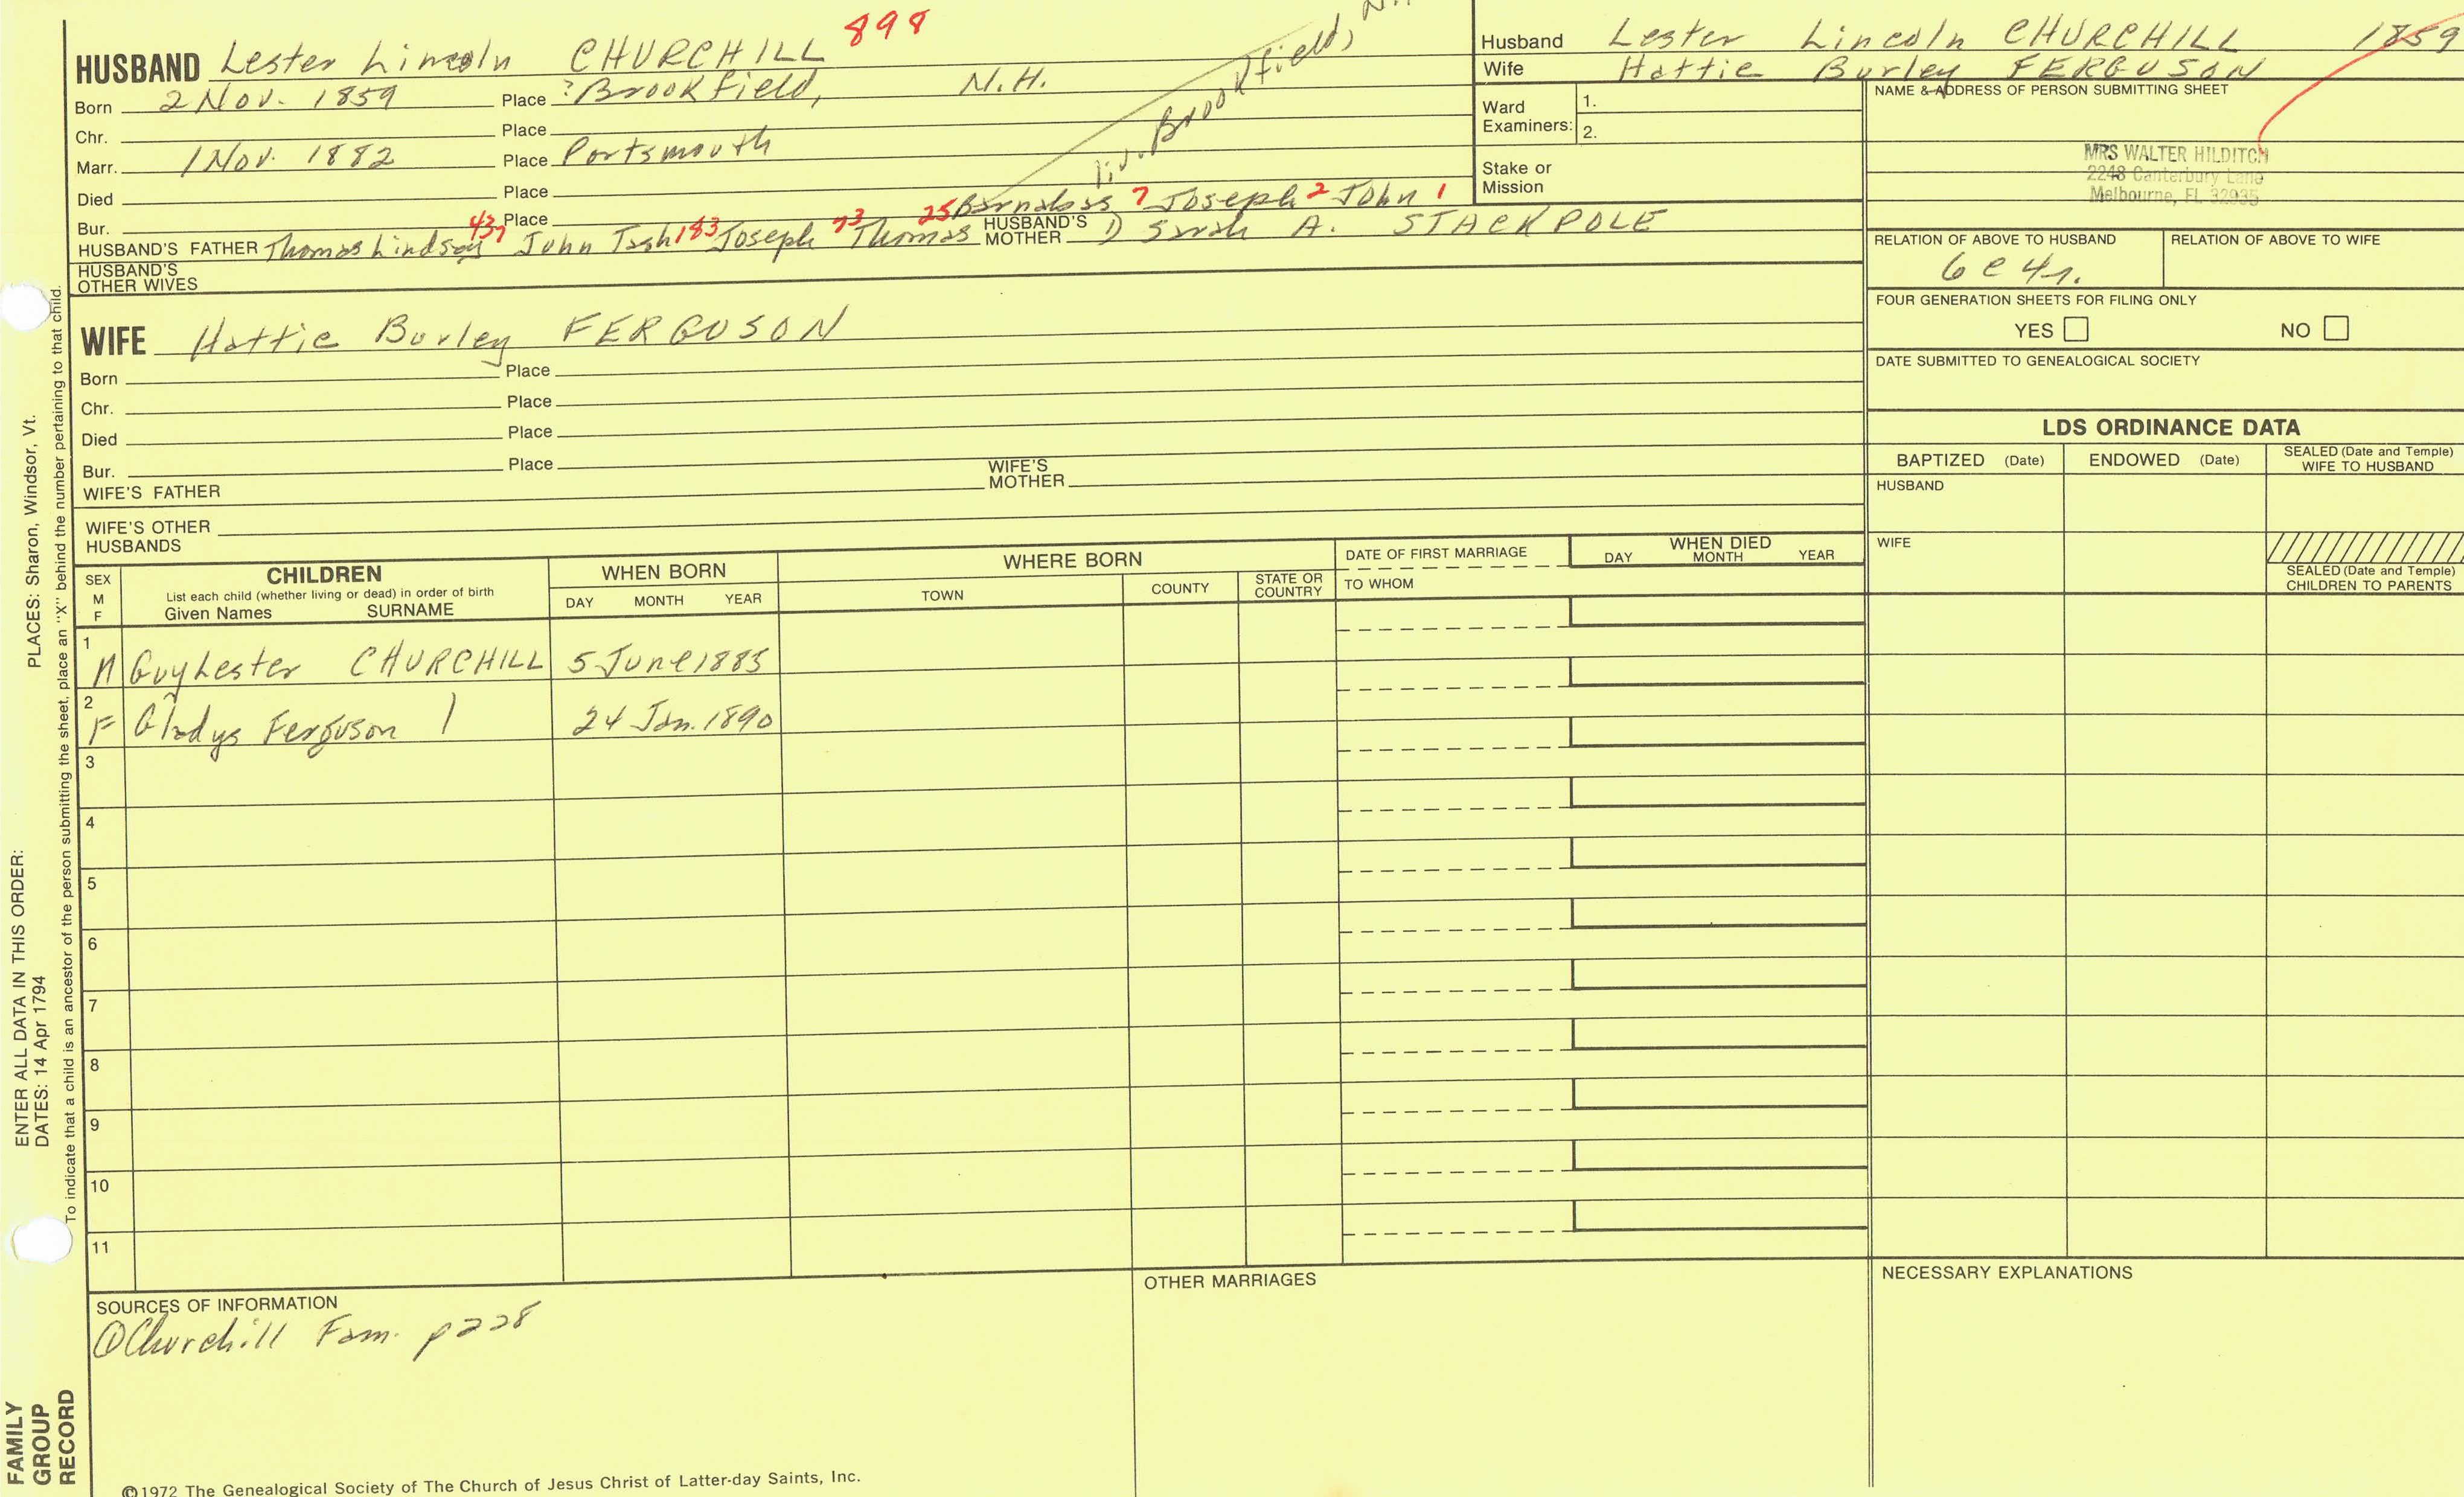 HUSBAND Lester Lincoln CHURCHILL 898
Born 2 Nov. 1859 Place ?Brookfield, N.H.
Chr. Place
Marr. 1 Nov. 1882 Place Portsmouth
liv. Brookfield, N.H.
Died Place
Bur. Place
437 183 73 25 Barnabas 7 Joseph 2 John 1
HUSBAND'S FATHER Thomas Lindsay John Tash Joseph Thomas HUSBAND'S MOTHER 1) Sarah A. STACKPOLE
HUSBAND'S OTHER WIVES
WIFE Hattie Burley FERGUSON
Born Place
Chr. Place
Died Place
Bur. Place
WIFE'S FATHER WIFE'S MOTHER
WIFE'S OTHER HUSBANDS
Husband Lester Lincoln CHURCHILL 1859
Wife Hattie Burley FERGUSON
Ward Examiners: 1.
2.
Stake or Mission
NAME & ADDRESS OF PERSON SUBMITTING SHEET
MRS WALTER HILDITCH
2248 Canterbury Lane
Melbourne, FL 32935
RELATION OF ABOVE TO HUSBAND RELATION OF ABOVE TO WIFE
6c4r.
FOUR GENERATION SHEETS FOR FILING ONLY
YES NO
DATE SUBMITTED TO GENEALOGICAL SOCIETY
LDS ORDINANCE DATA
BAPTIZED (Date) ENDOWED (Date) SEALED (Date and Temple) WIFE TO HUSBAND
HUSBAND
WIFE
SEALED (Date and Temple) CHILDREN TO PARENTS
SEX M F
CHILDREN
List each child (whether living or dead) in order of birth
Given Names SURNAME
WHEN BORN
DAY MONTH YEAR
WHERE BORN
TOWN COUNTY STATE OR COUNTRY
DATE OF FIRST MARRIAGE
TO WHOM
WHEN DIED
DAY MONTH YEAR
1 M Guy Lester CHURCHILL 5 June 1885
2 F Gladys Ferguson 24 Jan. 1890
3
4
5
6
7
8
9
10
11
SOURCES OF INFORMATION
①Churchill Fam. p228
OTHER MARRIAGES
NECESSARY EXPLANATIONS
©1972 The Genealogical Society of The Church of Jesus Christ of Latter-day Saints, Inc.
ENTER ALL DATA IN THIS ORDER: PLACES: Sharon, Windsor, Vt.
DATES: 14 Apr 1794
To indicate that a child is an ancestor of the person submitting the sheet, place an "X" behind the number pertaining to that child.
FAMILY
GROUP
RECORD